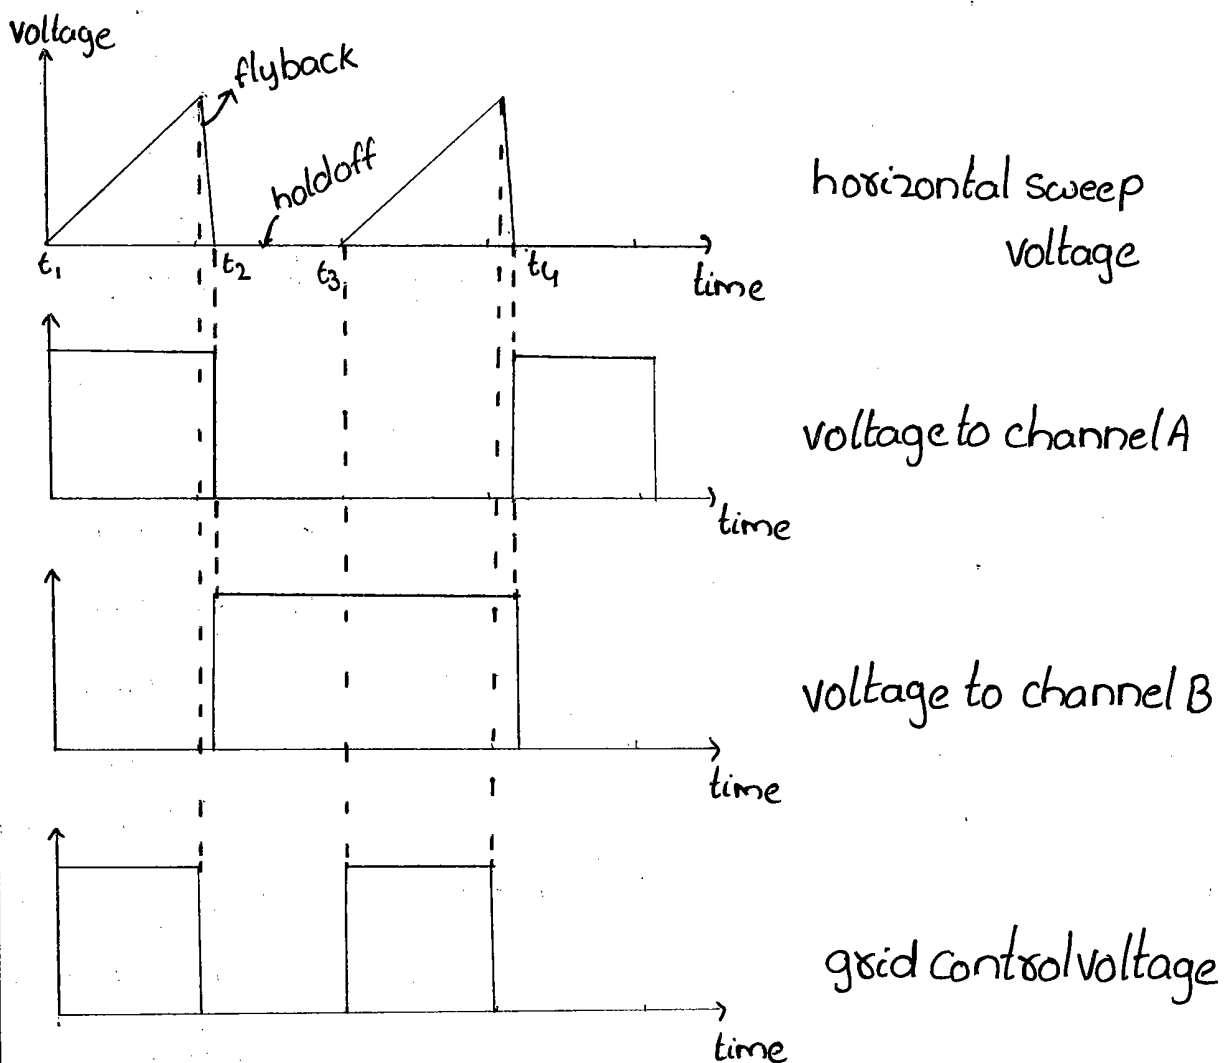 voltage
flyback
holdoff
t1
t2
t3
t4
time
horizontal sweep
voltage
voltage to channel A
time
voltage to channel B
time
grid control voltage
time